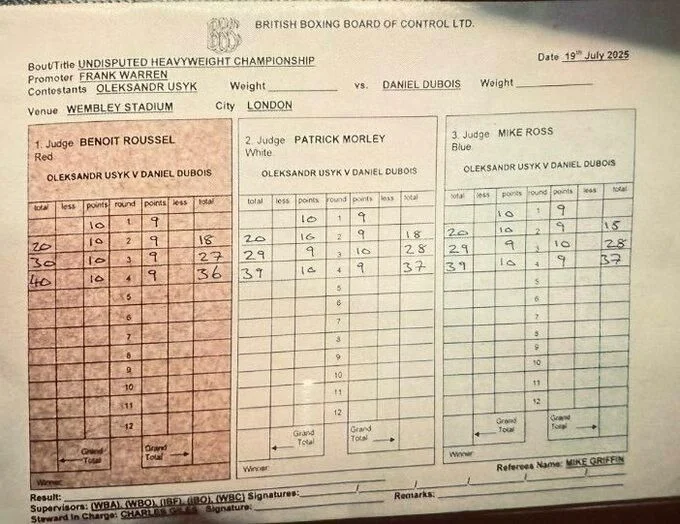 BRITISH BOXING BOARD OF CONTROL LTD.
Bout/Title UNDISPUTED HEAVYWEIGHT CHAMPIONSHIP Date 19th July 2025
Promoter FRANK WARREN
Contestants OLEKSANDR USYK Weight vs. DANIEL DUBOIS Weight
Venue WEMBLEY STADIUM City LONDON
1. Judge BENOIT ROUSSEL
Red
OLEKSANDR USYK V DANIEL DUBOIS
total less points round points less total
10 1 9
20 10 2 9 18
30 10 3 9 27
40 10 4 9 36
5
6
7
8
9
10
11
12
Grand Total Grand Total
Winner
2. Judge PATRICK MORLEY
White
OLEKSANDR USYK V DANIEL DUBOIS
total less points round points less total
10 1 9
20 10 2 9 18
29 9 3 10 28
39 10 4 9 37
5
6
7
8
9
10
11
12
Grand Total Grand Total
Winner
3. Judge MIKE ROSS
Blue
OLEKSANDR USYK V DANIEL DUBOIS
total less points round points less total
10 1 9
20 10 2 9 18
29 9 3 10 28
39 10 4 9 37
5
6
7
8
9
10
11
12
Grand Total Grand Total
Winner
Referees Name: MIKE GRIFFIN
Result:
Supervisors: (WBA), (WBO), (IBF), (IBO), (WBC) Signatures: Remarks:
Steward In Charge: CHARLES GILES Signature: